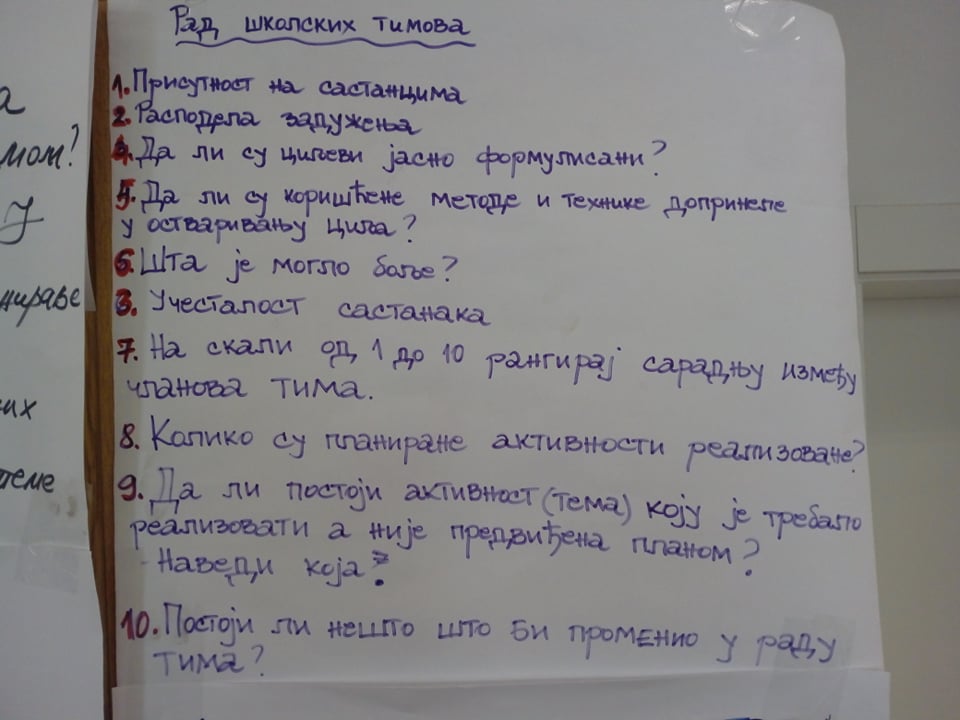 Рад школских тимова
1. Присутност на састанцима
2. Расподела задужења
4. Да ли су циљеви јасно формулисани?
5. Да ли су коришћене методе и технике допринеле
у остваривању циља?
6. Шта је могло боље?
3. Учесталост састанака
7. На скали од 1 до 10 рангирај сарадњу између
чланова тима.
8. Колико су планиране активности реализоване?
9. Да ли постоји активност (тема) коју је требало
реализовати а није предвиђена планом?
Наведи која?
10. Постоји ли нешто што би променио у раду
тима?